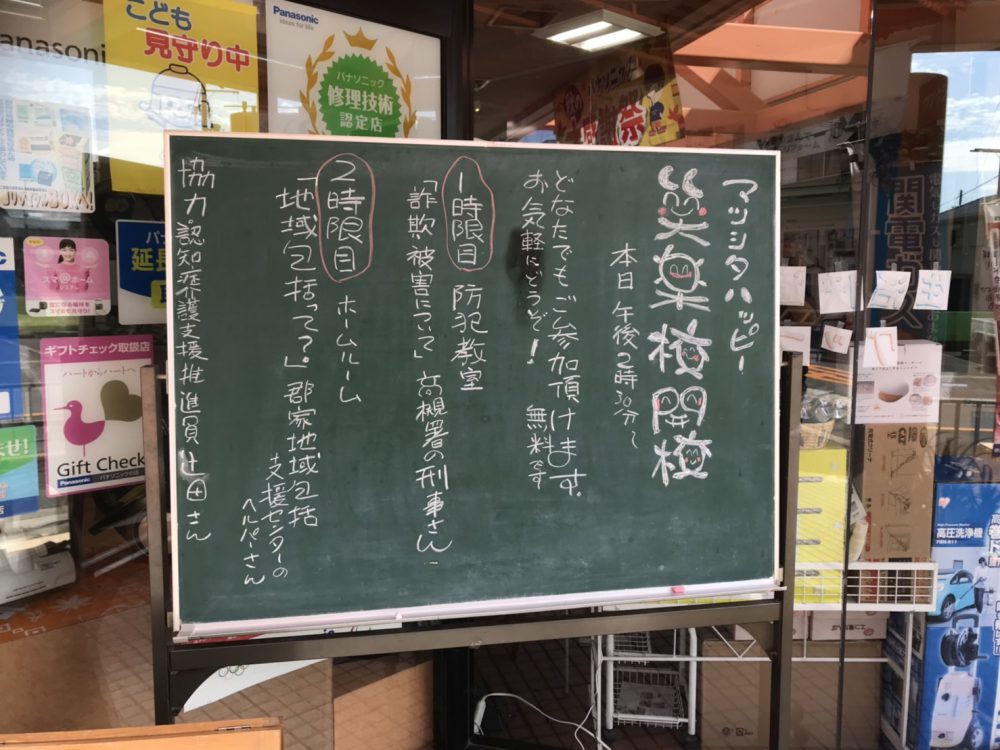 マッシタハッピー
笑楽校開校
本日 午後2時30分〜
どなたでもご参加頂けます。
お気軽にどうぞ! 無料です
1時限目 防犯教室
「詐欺被害について」高槻署の刑事さん
2時限目 ホームルーム
「地域包括って?」郡家地域包括
支援センターの
ヘルパーさん
協力・認知症介護支援推進員 辻田さん
こども
見守り中
Panasonic
ideas for life
パナソニック
修理技術
認定店
anasonic
スマ@ホーム
ギフトチェック取扱店
ハートからハートへ
Gift Check
Panasonic パナソニックの店
延長
関電ガス
高圧洗浄機